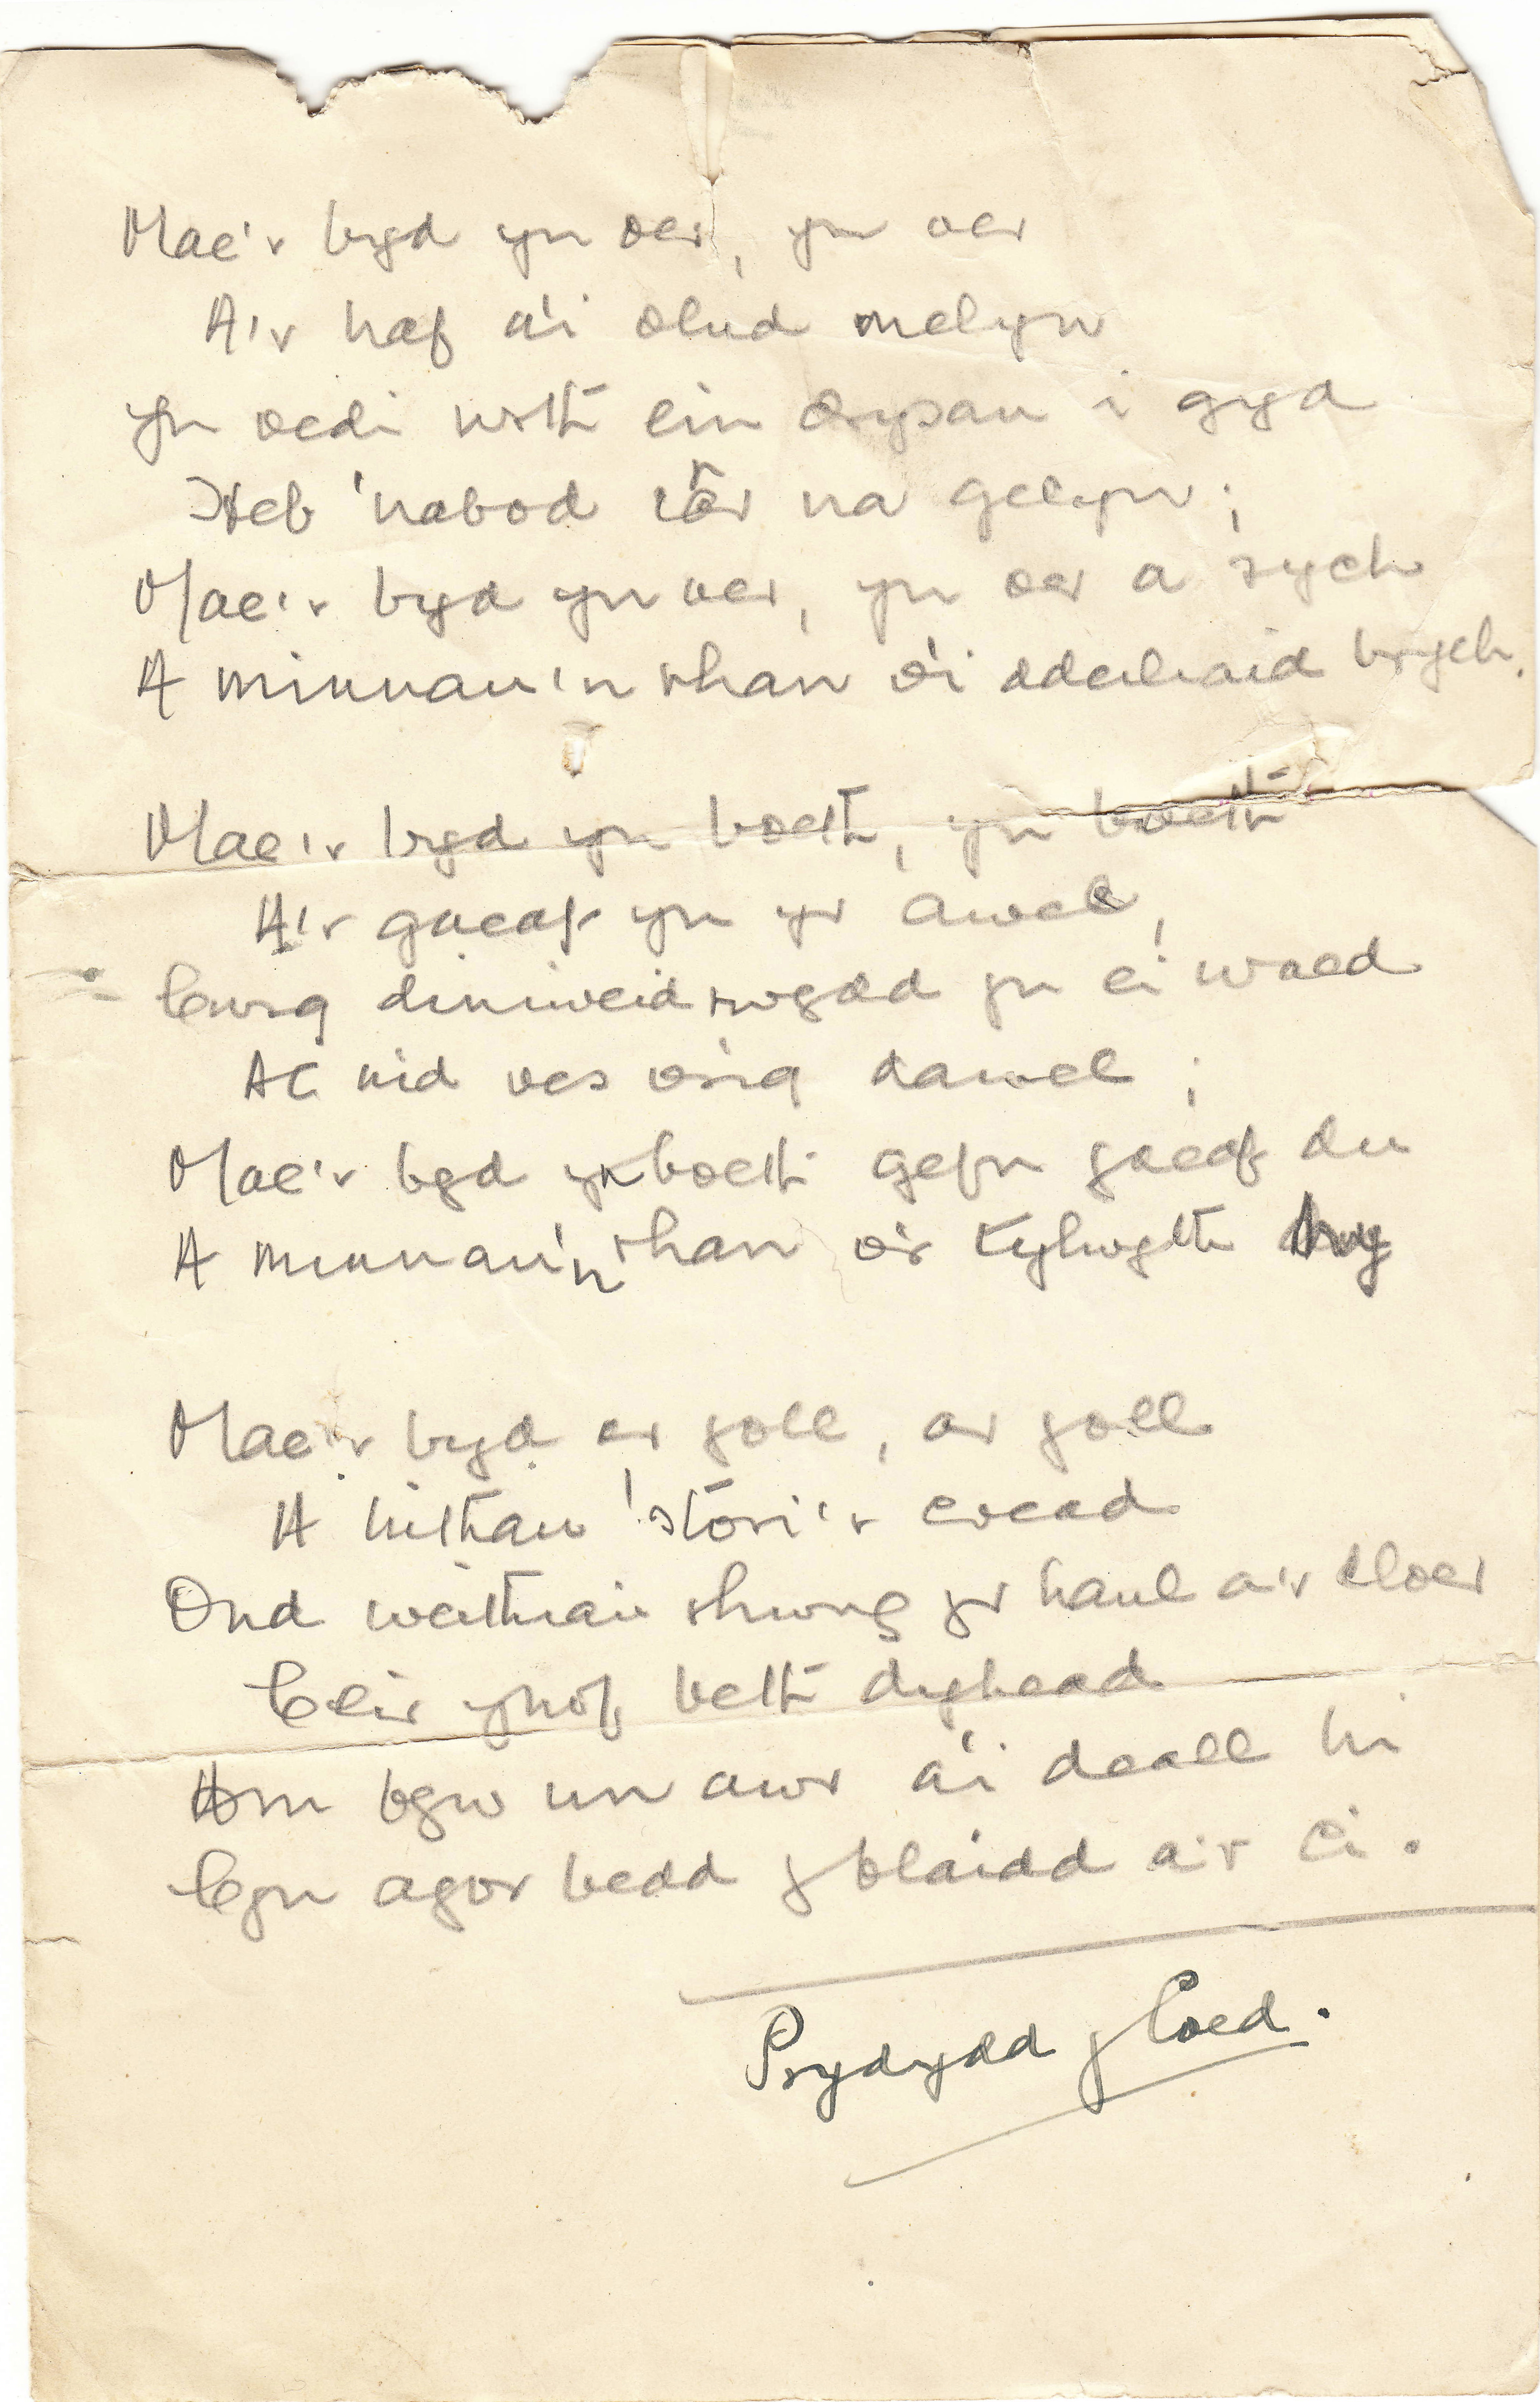 Mae'r byd yn oer, yn oer
A'r haf a'i olud melyn
Yn oedi wrth ein drysau i gyd
Heb 'nabod câr na gelyn;
Mae'r byd yn oer, yn oer a sych
A minnau'n rhan o'i ddeiliaid brych.
Mae'r byd yn boeth, yn boeth
A'r gaeaf yn yr awel,
Curq diniweidrwydd yn ei waed
Ac nid oes orig dawel;
Mae'r byd yn boeth gefn gaeaf du
A minnau'n rhan o'r tylwyth
Mae'r byd ar goll, ar goll
A hithau 'stori'r cread
Ond weithiau rhwng yr haul a'r lloer
Clir ynof beth dyhead
Am byw un awr a'i deall hi
Cyn agor bedd y blaidd a'r ci.
Prydydd y Coed.